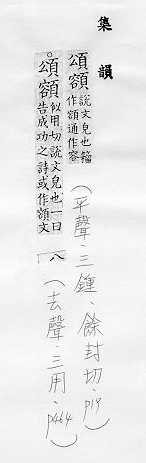 集韻
頌額 說文皃也籀
作額通作容
(平聲.三鍾、餘封切.p19)
頌額 似用切說文皃也一曰
告成功之詩或作額文
八
(去聲.三用.p464)